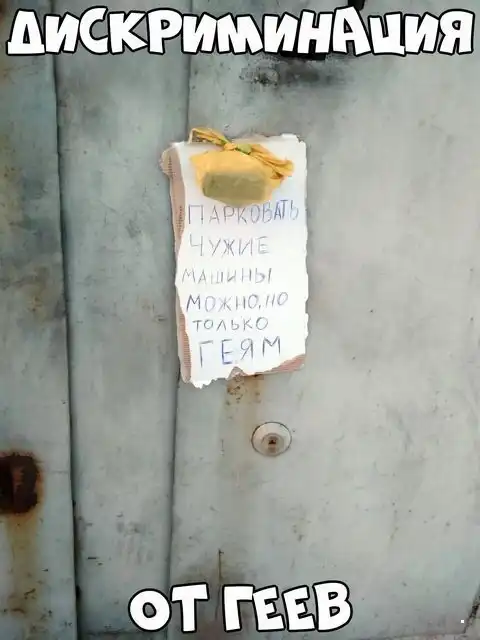 ДИСКРИМИНАЦИЯ
ПАРКОВАТЬ
ЧУЖИЕ
МАШИНЫ
МОЖНО, НО
ТОЛЬКО
ГЕЯМ
ОТ ГЕЕВ